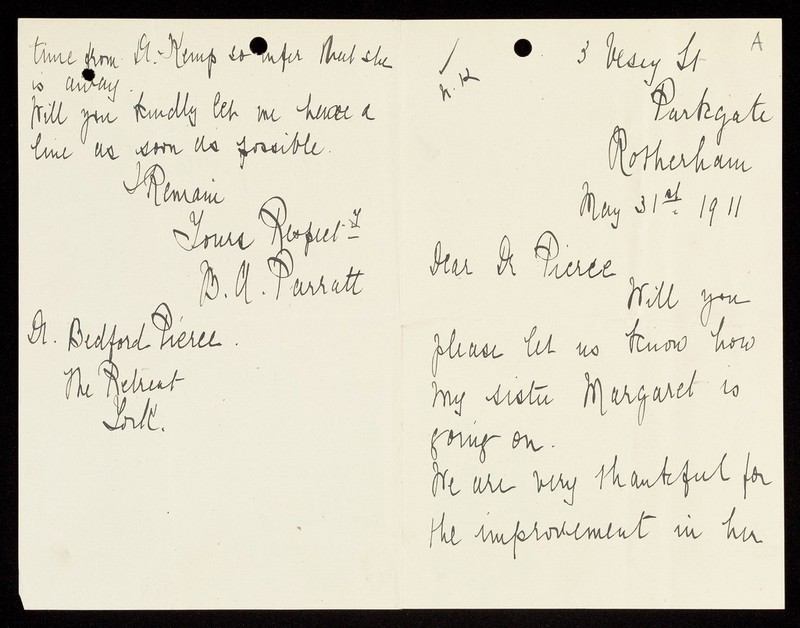 time from Dr. Kemp so infer that she
is away.
Will you kindly let me have a
line as soon as possible.
I Remain
Yours Respect-y
B. A. Parratt
Dr. Bedford Pierce.
The Retreat
York.
A
3 Vesey St
Parkgate
Rotherham
May 31st. 1911
Dear Dr Pierce
Will you
please let us know how
my sister Margaret is
going on.
We are very thankful for
the improvement in her